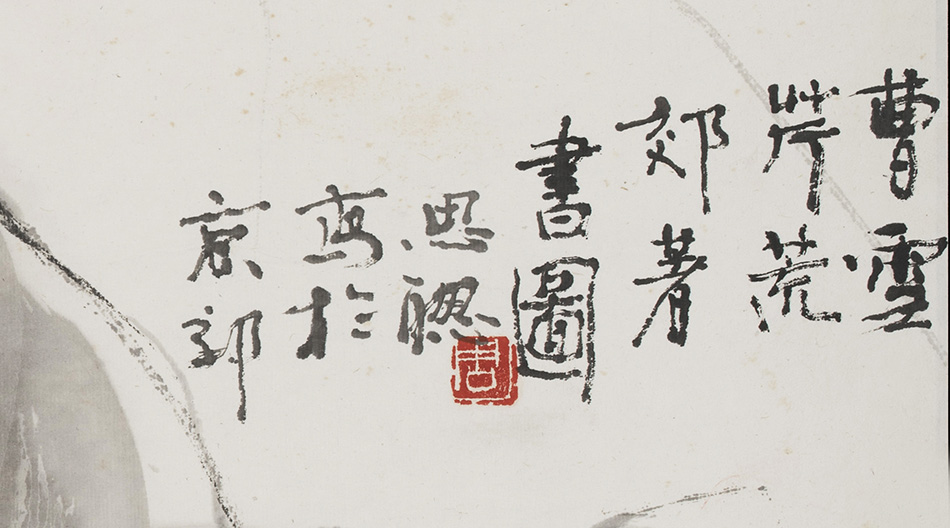 曹雪
芹荒
郊著
書圖
思聰
寫於
京郊
周